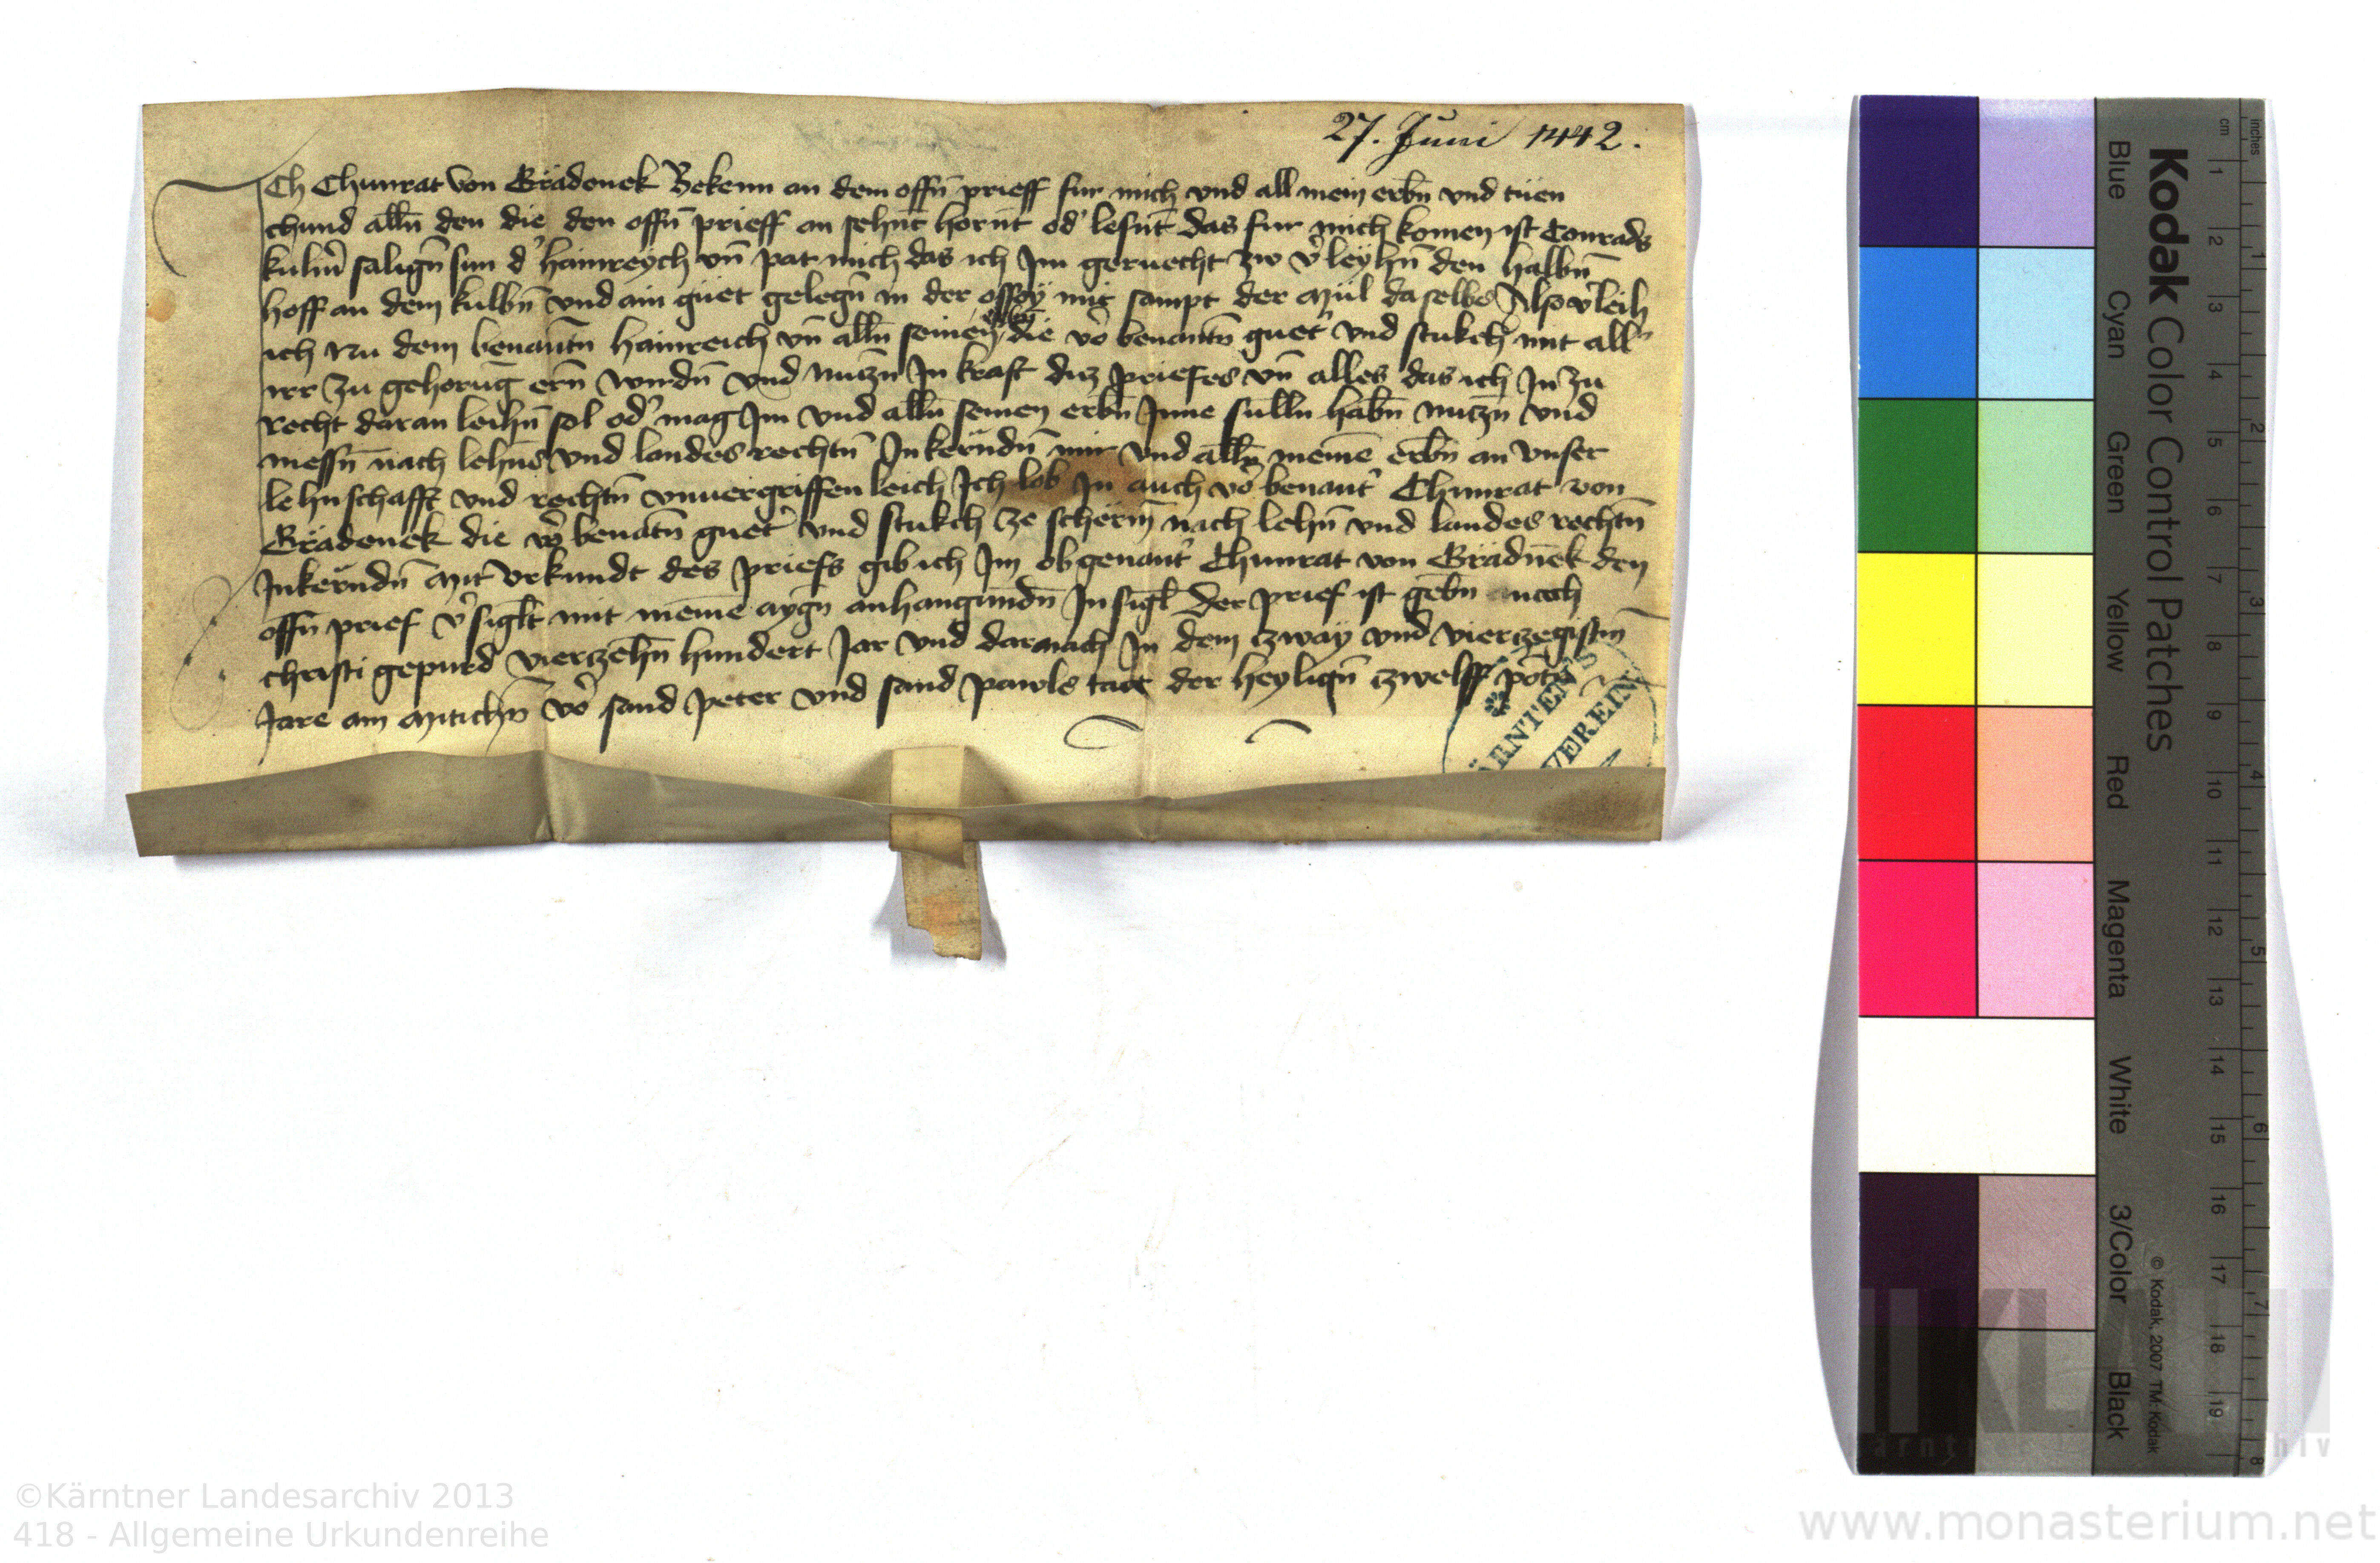 27. Juni 1442.
Ich Chunrat von Grädenek Bekenn an dem offn̄ prieff fur mich vnd all mein erbn̄ vnd tuen
chund alln̄ den die den offn̄ prieff an sehnt̄ hornt̄ od' lesnt̄ das fur mich komen ist Conrads
salign̄ sun d' hainreych vn̄ pat mich das ich Im geruecht zw v'leyhn̄ den halbn̄
hoff an dem kulbn̄ vnd ain guet gelegn̄ in der ossoÿ mit sampt der mül daselbs Also v'leih
ich nu dem benantn̄ hainreich vn̄ alln̄ seinen erbn̄ die vo' benantn̄ guet' vnd stukch mit all'
irr zu gehorung ern̄ wirdn̄ vnd nutzn̄ In kraft diz priefes vn̄ alles das ich In zu
recht daran leihn̄ sol od' mag Im vnd alln̄ seinen erbn̄ Inne sulln habn̄ nutzn̄ vnd
niessn̄ nach lehns vnd landes rechtn̄ In kerndn̄ mir vnd alln̄ meinē erbn̄ an vnser
lehnschafft vnd rechtn̄ vnuergriffenleich Ich lob In auch vo' benant' Chunrat von
Grädenek die vo' benatn̄ guet' vnd stukch ze scherm̄ nach lehn̄ vnd landes rechtn̄
In kerndn̄ Mit vrkundt des priefs gib ich Im obgenant' Chunrat von Grädnēk den
offn̄ prief v'siglt̄ mit meinē aygn̄ anhangundn̄ Insigl̄ Der prief ist gebn̄ nach
christi gepurd vierzehn̄ hundert Jar vnd darnach In dem zway vnd vierzegistm̄
Jare am Mitichn̄ vo' sand peter vnd sand pawls tag der heylign̄ zwelff potn̄
ÄRNTEN
VEREIN
Kodak Color Control Patches
Blue Cyan Green Yellow Red Magenta White 3/Color Black
© Kodak, 2007 TM: Kodak
inches 1 2 3 4 5 6 7 8
cm 1 2 3 4 5 6 7 8 9 10 11 12 13 14 15 16 17 18 19
©Kärntner Landesarchiv 2013
418 - Allgemeine Urkundenreihe
www.monasterium.net